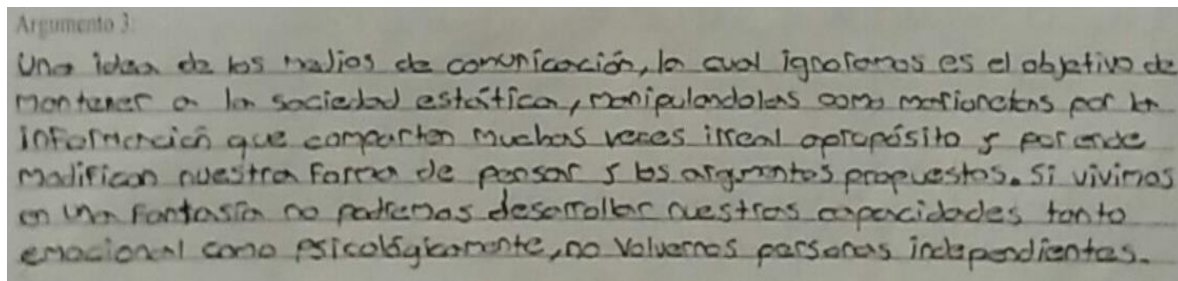 Argumento 3:
Una idea de los medios de comunicación, la cual ignoramos es el objetivo de
mantener a la sociedad estática, manipulandolas como marionetas por la
información que comparten muchas veces irreal apropósito y por ende
modifican nuestra forma de pensar y los argumentos propuestos. Si vivimos
en una fantasía no podremos desarrollar nuestras capacidades tanto
emocional como psicológicamente, no volvernos personas independientes.